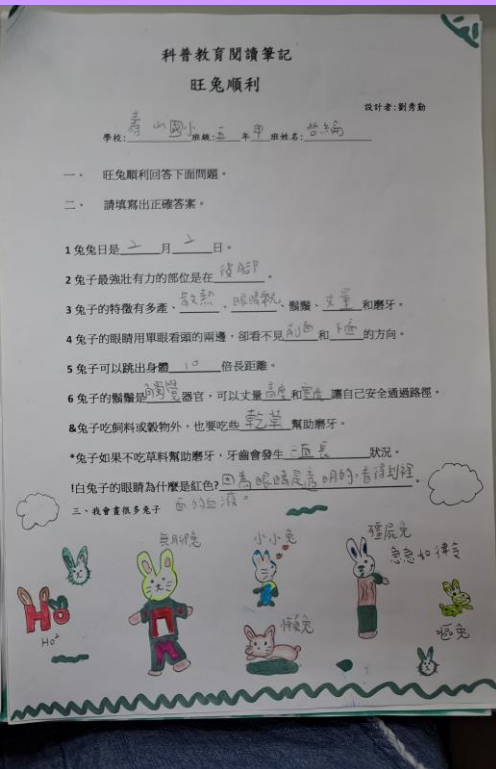 科普教育閱讀筆記
旺兔順利
設計者:劉秀勤
學校:壽山國小班級:五年甲班姓名:
一、 旺兔順利回答下面問題。
二、 請填寫出正確答案。
1 兔兔日是2月2日。
2 兔子最強壯有力的部位是在後腳。
3 兔子的特徵有多產、散熱、眼睛軌、鬍鬚、丈量和磨牙。
4 兔子的眼睛用單眼看頭的兩邊，卻看不見前面和下面的方向。
5 兔子可以跳出身體10倍長距離。
6 兔子的鬍鬚是觸覺器官，可以丈量高度和寬度讓自己安全通過路徑。
&兔子吃飼料或穀物外，也要吃些乾草幫助磨牙。
*兔子如果不吃草料幫助磨牙，牙齒會發生一直長狀況。
!白兔子的眼睛為什麼是紅色?因為眼睛是透明的,看得到裡
面的血液。
三、我會畫很多兔子
無聊兔
小小兔
殭屍兔
急急如律令
Ho
Ho²
懶兔
嘔兔